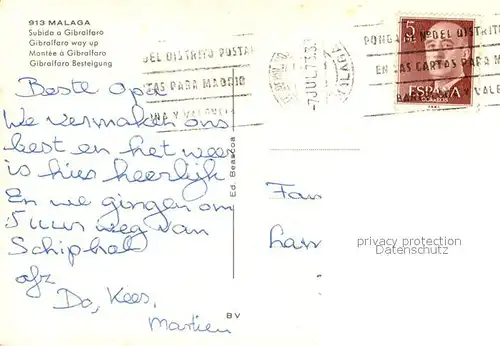 913 MALAGA
Subida a Gibralfaro
Gibralfaro way up
Montée à Gibralfaro
Gibralfaro Besteigung
DEL DISTRITO POSTAL
PARA MADRID
NA Y VALENCIA
-7 JUL 75
MALAGA
PONGA Nº DEL DISTRITO
EN LAS CARTAS PARA MA
Y VALE
5
PTS
ESPAÑA
CORREOS
Beste Opa
We vermaken ons
best en het weer
is hier heerlijk
En we gingen om
5 uur weg van
Schiphol
afz
Do, Kees,
Martien
Ed. Beascoa
Fam
privacy protection
Datenschutz
BV